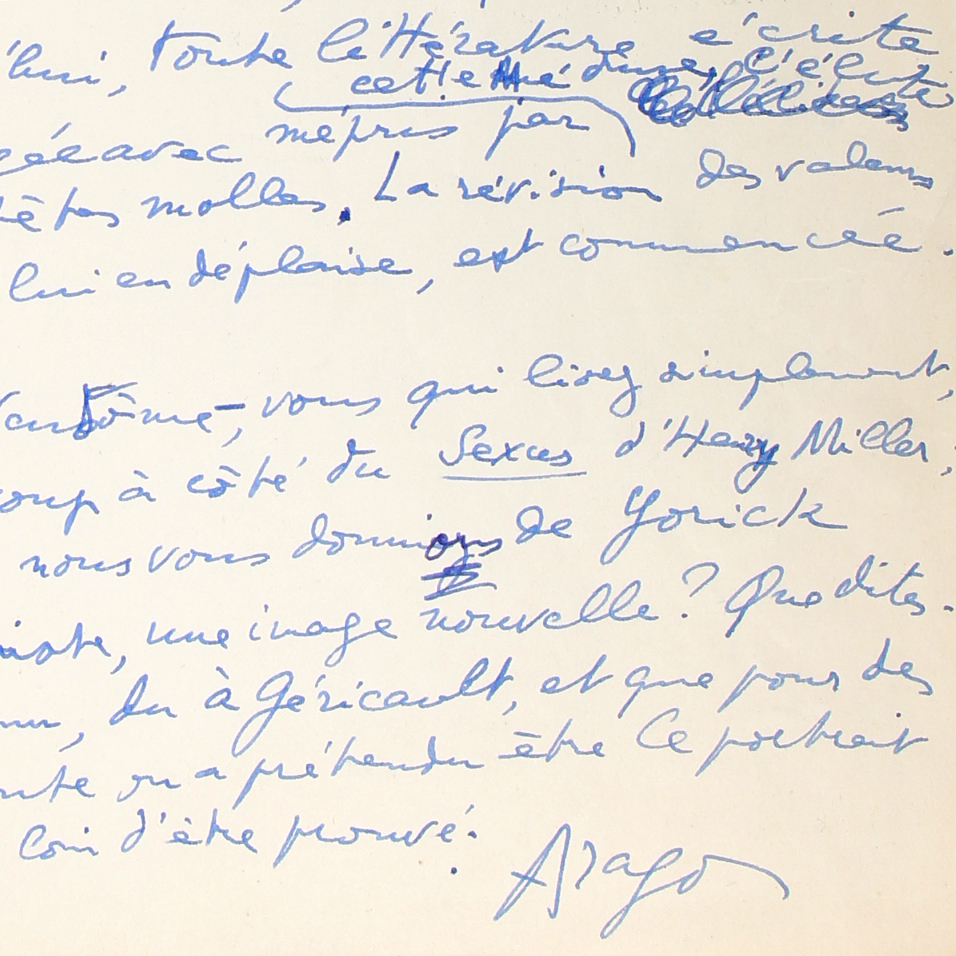 'hui, toute littérature écrite
cette d'une, l'élite
avec mépris par
têtes molles. La révision des valeurs
lui en déplaise, est commencée.
Fantôme, vous qui lisez simplement,
coup à côté du Sexus d'Henry Miller,
nous vous donnions de Yorick
une image nouvelle? Que dites-
du à Géricault, et que pour des
on a prétendu être Ce portrait
loin d'être prouvé.
Aragon